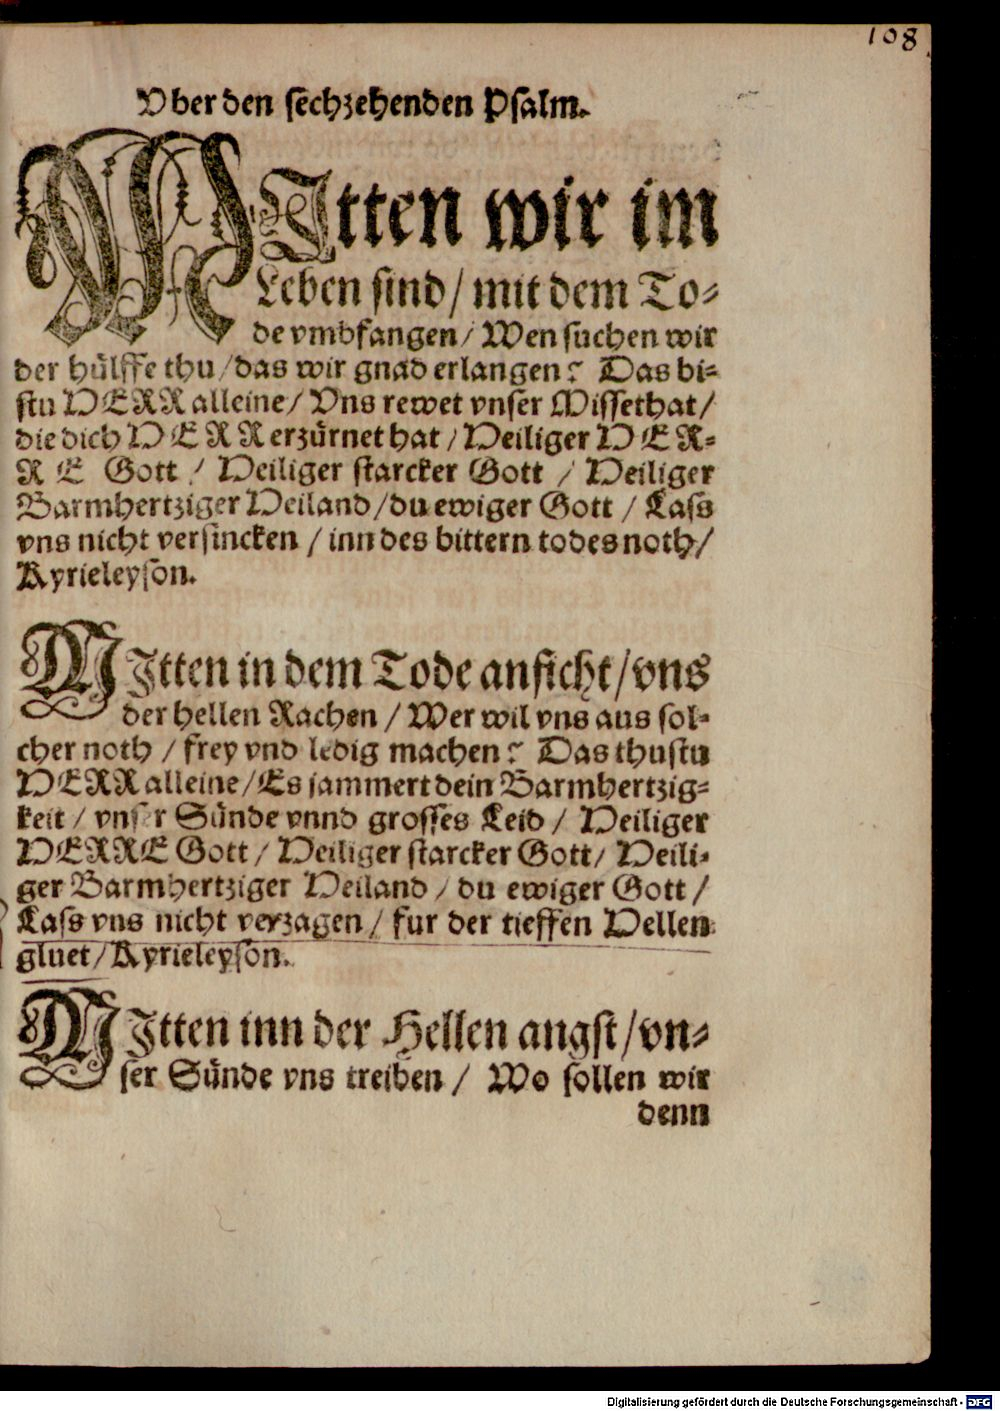 108
Vber den sechzehenden Psalm.
MItten wir im
Leben sind/ mit dem To-
de vmbfangen/ Wen suchen wir
der hülffe thu/das wir gnad erlangen? Das bi-
stu HERR alleine/ Vns rewet vnser Missethat/
die dich HERR erzürnet hat/ Heiliger HER-
RE Gott/ Heiliger starcker Gott/ Heiliger
Barmhertziger Heiland/du ewiger Gott/ Lass
vns nicht versincken/ inn des bittern todes noth/
Kyrieleyson.
MItten in dem Tode anficht/vns
der hellen Rachen/ Wer wil vns aus sol-
cher noth/ frey vnd ledig machen? Das thustu
HERR alleine/Es jammert dein Barmhertzig-
keit/ vnser Sünde vnnd grosses Leid/ Heiliger
HERRE Gott/ Heiliger starcker Gott/ Heili-
ger Barmhertziger Heiland/ du ewiger Gott/
Lass vns nicht verzagen/ fur der tieffen Hellen
gluet/Kyrieleyson.
MItten inn der Hellen angst/vn-
ser Sünde vns treiben/ Wo sollen wir
denn
Digitalisierung gefördert durch die Deutsche Forschungsgemeinschaft - DFG